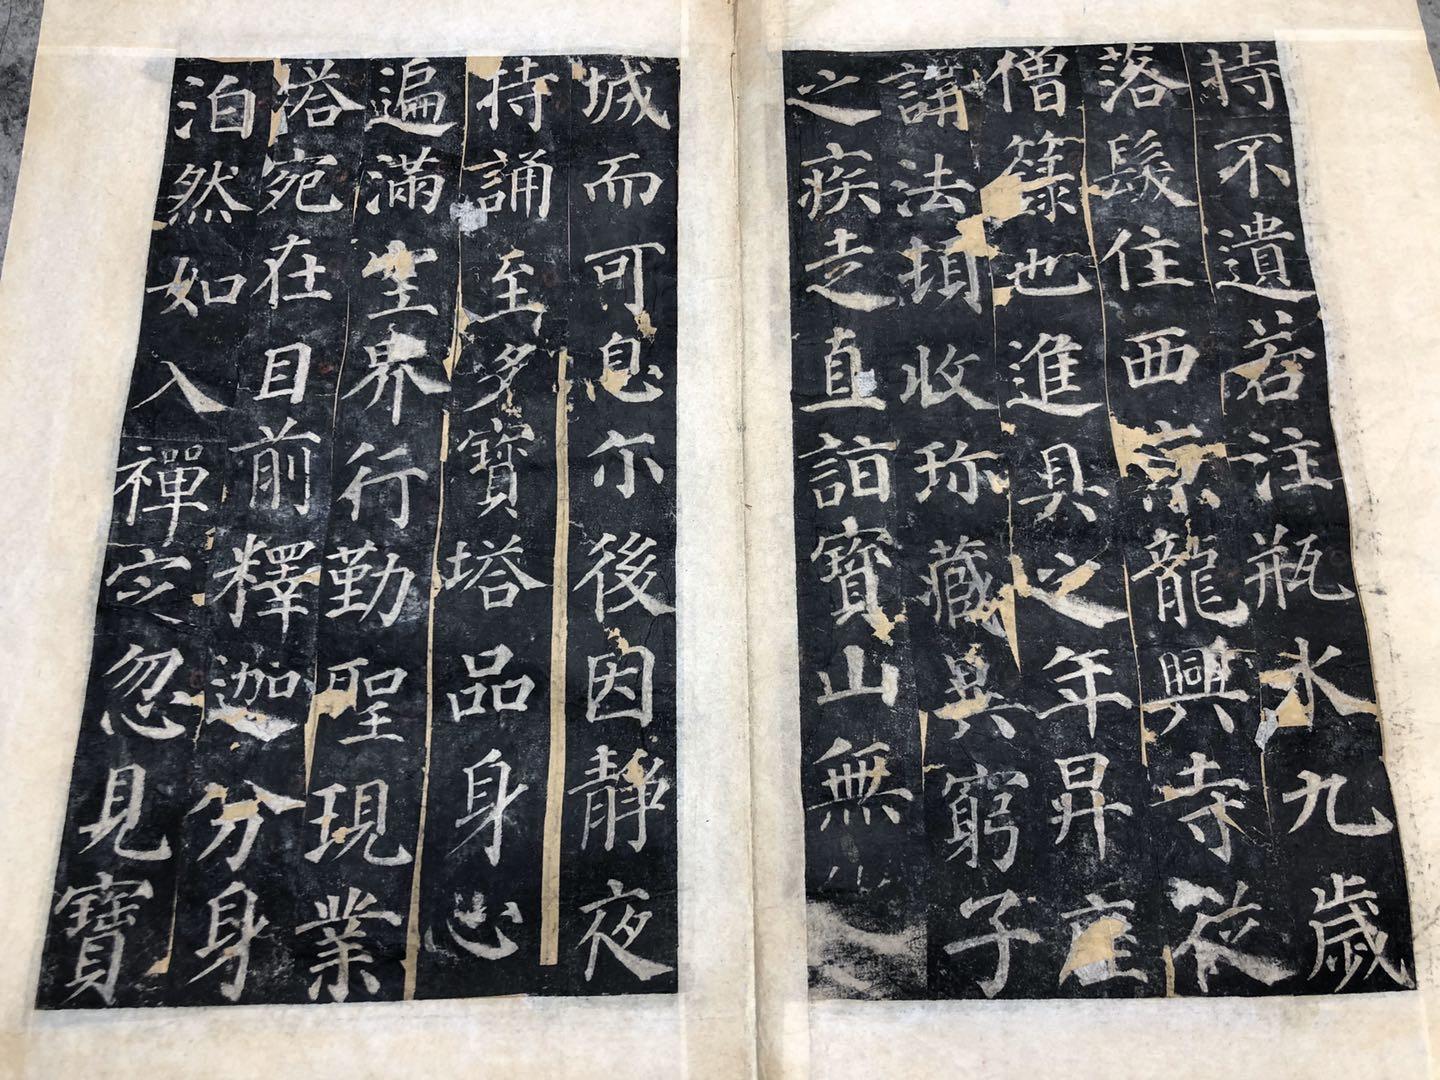 持不遺若注瓶水九歲
落髮住西京龍興寺從
僧籙也進具之年昇座
講法頓收珎藏異窮子
之疾走直詣寶山無
城而可息尒後因靜夜
持誦至多寶塔品身心
遍滿空界行勤聖現業
塔宛在目前釋迦分身
泊然如入禪定忽見寶